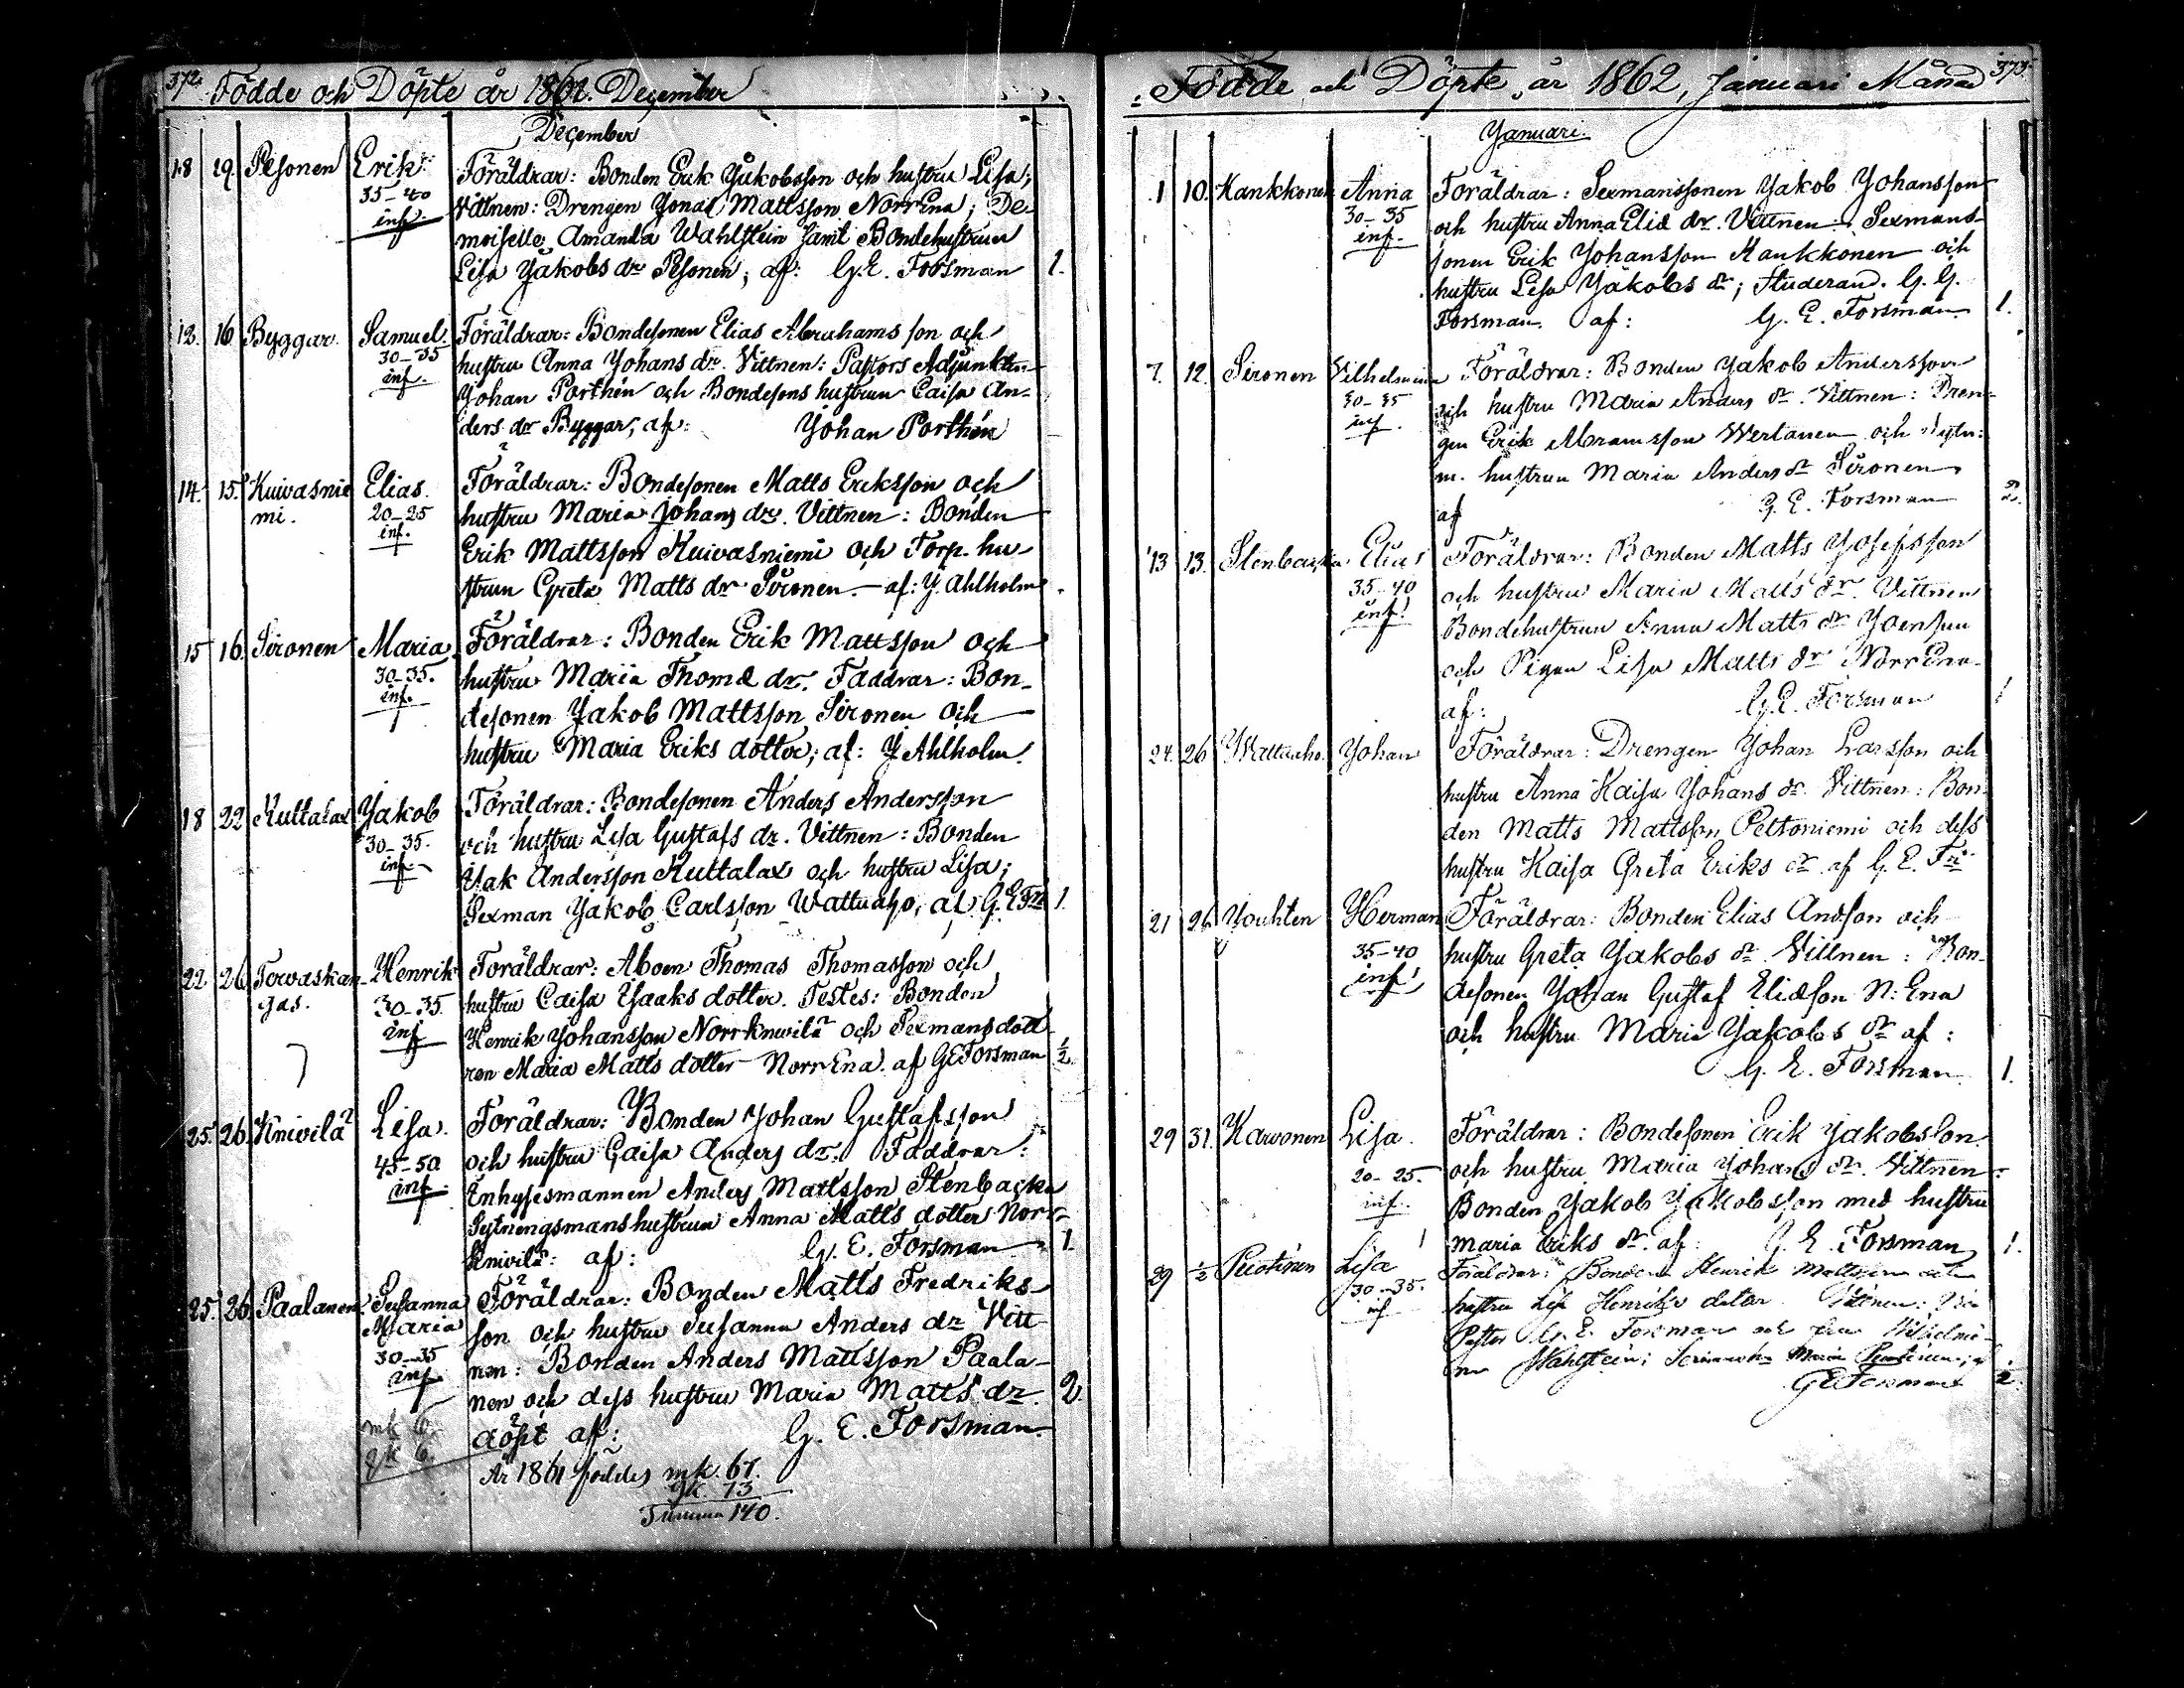 372. Födde och Döpte år 1861. December
December
18 19. Pesonen Erik. Föräldrar: Bonden Erik Jakobsson och hustru Lisa;
35-40 Vittnen: Drengen Jonas Mattsson NorrEna; De-
inf. moiselle Amanda Wahlstein samt Bondehustrun
Lisa Jakobs dr Pesonen; af: G.E. Forsman 1.
12. 16. Byggar. Samuel. Föräldrar: Bondesonen Elias Abrahamsson och
30-35 hustru Anna Johans dr. Vittnen: Pastors Adjunkten
inf. Johan Porthén och Bondesons hustrun Caisa An-
ders dr Byggar, af: Johan Porthén
14. 15. Kuivasnie Elias. Föräldrar: Bondesonen Matts Eriksson och
mi. 20-25 hustru Maria Johans dr. Vittnen: Bonden
inf. Erik Mattsson Kuivasniemi och Torp. hu-
strun Greta Matts dr Sironen. - af: J. Ahlholm.
15 16. Sironen Maria. Föräldrar: Bonden Erik Mattsson och
30-35. hustru Maria Thomæ dr. Faddrar: Bon-
inf. desonen Jakob Mattsson Sironen och
hustru Maria Eriks dotter; af: J Ahlholm.
18 22 Kuttalax Jakob Föräldrar: Bondesonen Anders Andersson
30-35. och hustru Lisa Gustafs dr. Vittnen: Bonden
inf. Jak Andersson Kuttalax och hustru Lisa;
Sexman Jakob Carlsson Wattuaho, af G. E Fn 1.
22. 26. Tervaskan- Henrik Föräldrar: Aboen Thomas Thomasson och
gas. 30-35. hustru Caisa Isaaks dotter. Testes: Bonden
inf Henrik Johansson Norrkniwilä och Sexmansdott-
ren Maria Matts dotter NorrEna. af GEForsman 1/2
25. 26. Knivilä Lisa. Föräldrar: Bonden Johan Gustafsson
45-50 och hustru Caisa Anders dr. Faddrar:
inf. Enhysesmannen Anders Mattsson Stenbacka
Sytningsmanshustrun Anna Matts dotter Norr-
Knivilä: af: G. E. Forsman 1.
25. 26. Paalanen. Susanna Föräldrar: Bonden Matts Fredriks-
Maria son och hustru Susanna Anders dr Vitt
30-35 nen: Bonden Anders Mattsson Paala-
inf. nen och dess hustru Maria Matts dr. 2.
mk 6. döpt af: G. E. Forsman.
qk 6.
År 1861 föddes mk. 67.
qk. 73
Summa 140.
Födde och Döpte år 1862, Januari Månad 373.
Januari.
1 10. Kankkonen Anna Föräldrar: Sexmanssonen Jakob Johansson
30-35 och hustru Anna Eliæ dr. Vittnen: Sexmans-
inf. sonen Erik Johansson Kankkonen och
hustru Lisa Jakobs dr; Studerand. G. G.
Forsman. af: G. E. Forsman. 1.
7. 12. Sironen Vilhelmina Föräldrar: Bonden Jakob Andersson
30-35 och hustru Maria Anders dr. Vittnen: Dren-
inf. gen Erik Abramsson Wertanen och Sytn:
m. hustrun Maria Anders dr Sironen
af G. E. Forsman 2.
13 13. Stenbacka Elias Föräldrar: Bonden Matts Josefsson
35-40 och hustru Maria Matts dr. Vittnen
inf. Bondehustrun Anna Matts dr Joensuu
och Pigan Lisa Matts dr NorrEna
af: G. E. Forsman 1
24. 26 Wattuaho. Johan Föräldrar: Drengen Johan Larsson och
hustru Anna Kaisa Johans dr. Vittnen: Bon-
den Matts Mattsson Peltoniemi och dess
hustru Kaisa Greta Eriks dr. af G. E. Fn
21 26. Jouhten Herman Föräldrar: Bonden Elias Andsson och
35-40 hustru Greta Jakobs dr Vittnen: Bon-
inf. desonen Johan Gustaf Eliæson N: Ena
och hustru Maria Jakobs dr af:
G. E. Forsman. 1.
29 31. Karvonen Lisa. Föräldrar: Bondesonen Erik Jakobsson
20-25. och hustru Maria Johans dr. Vittnen:
inf. Bonden Jakob Jakobsson med hustru
Maria Eriks dr. af: G. E. Forsman 1.
29 1/2 Lisa Föräldrar: Bonden Henrik Mattsson och
30-35. hustru Lisa Henriks dotter Vittnen:
inf Pastor G. E. Forsman och Vilhelmi-
na Wahlstein; Maria
GEForsman 2.